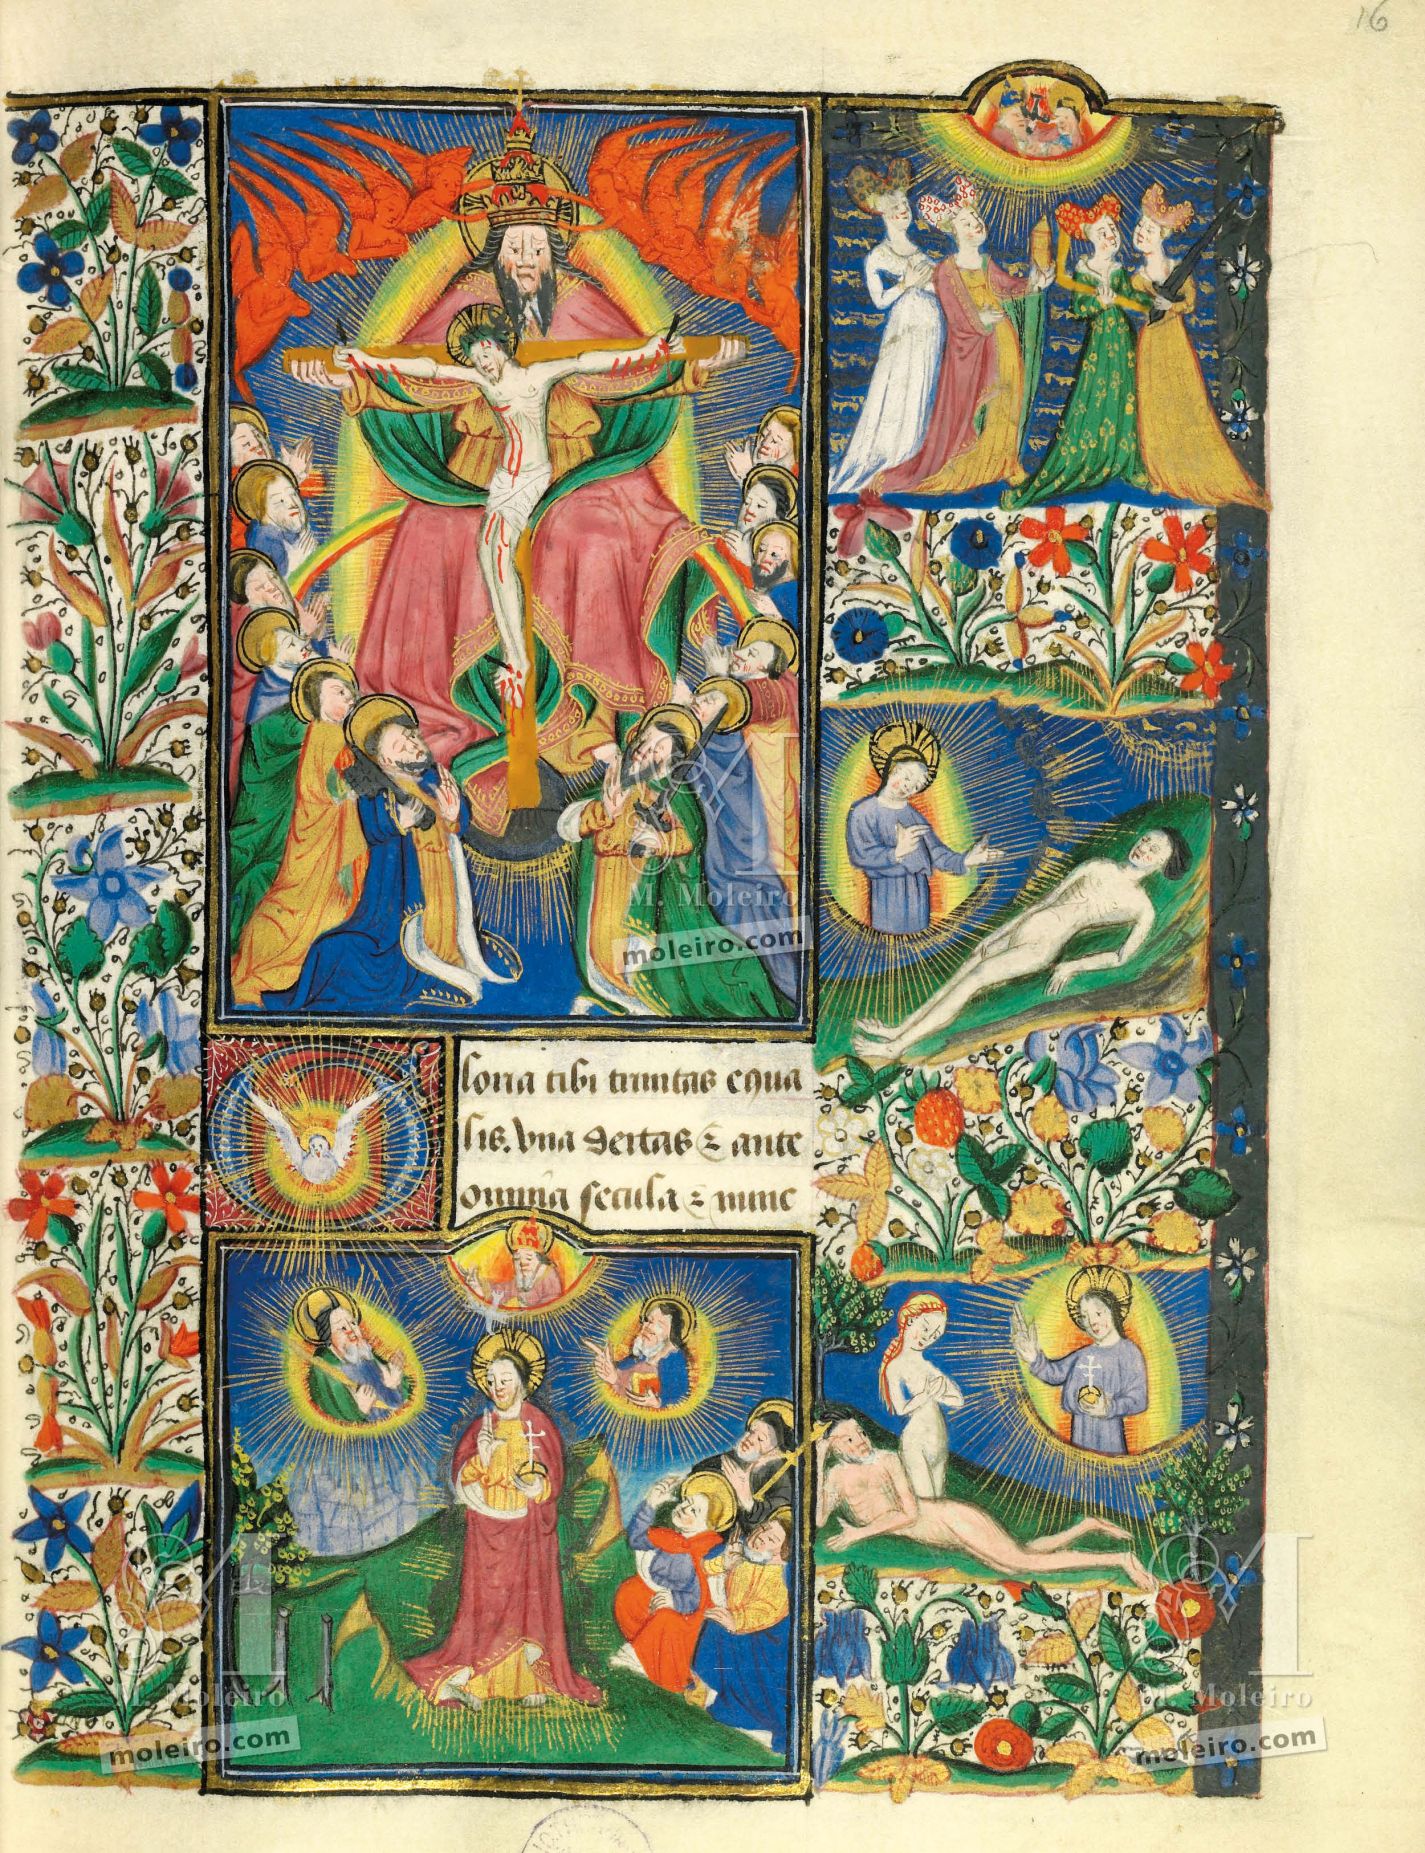 16
loria tibi trinitas equa
lis. Vna deitas & ante
omnia secula & nunc
M. Moleiro
moleiro.com
M. Moleiro
moleiro.com
M. Moleiro
moleiro.com